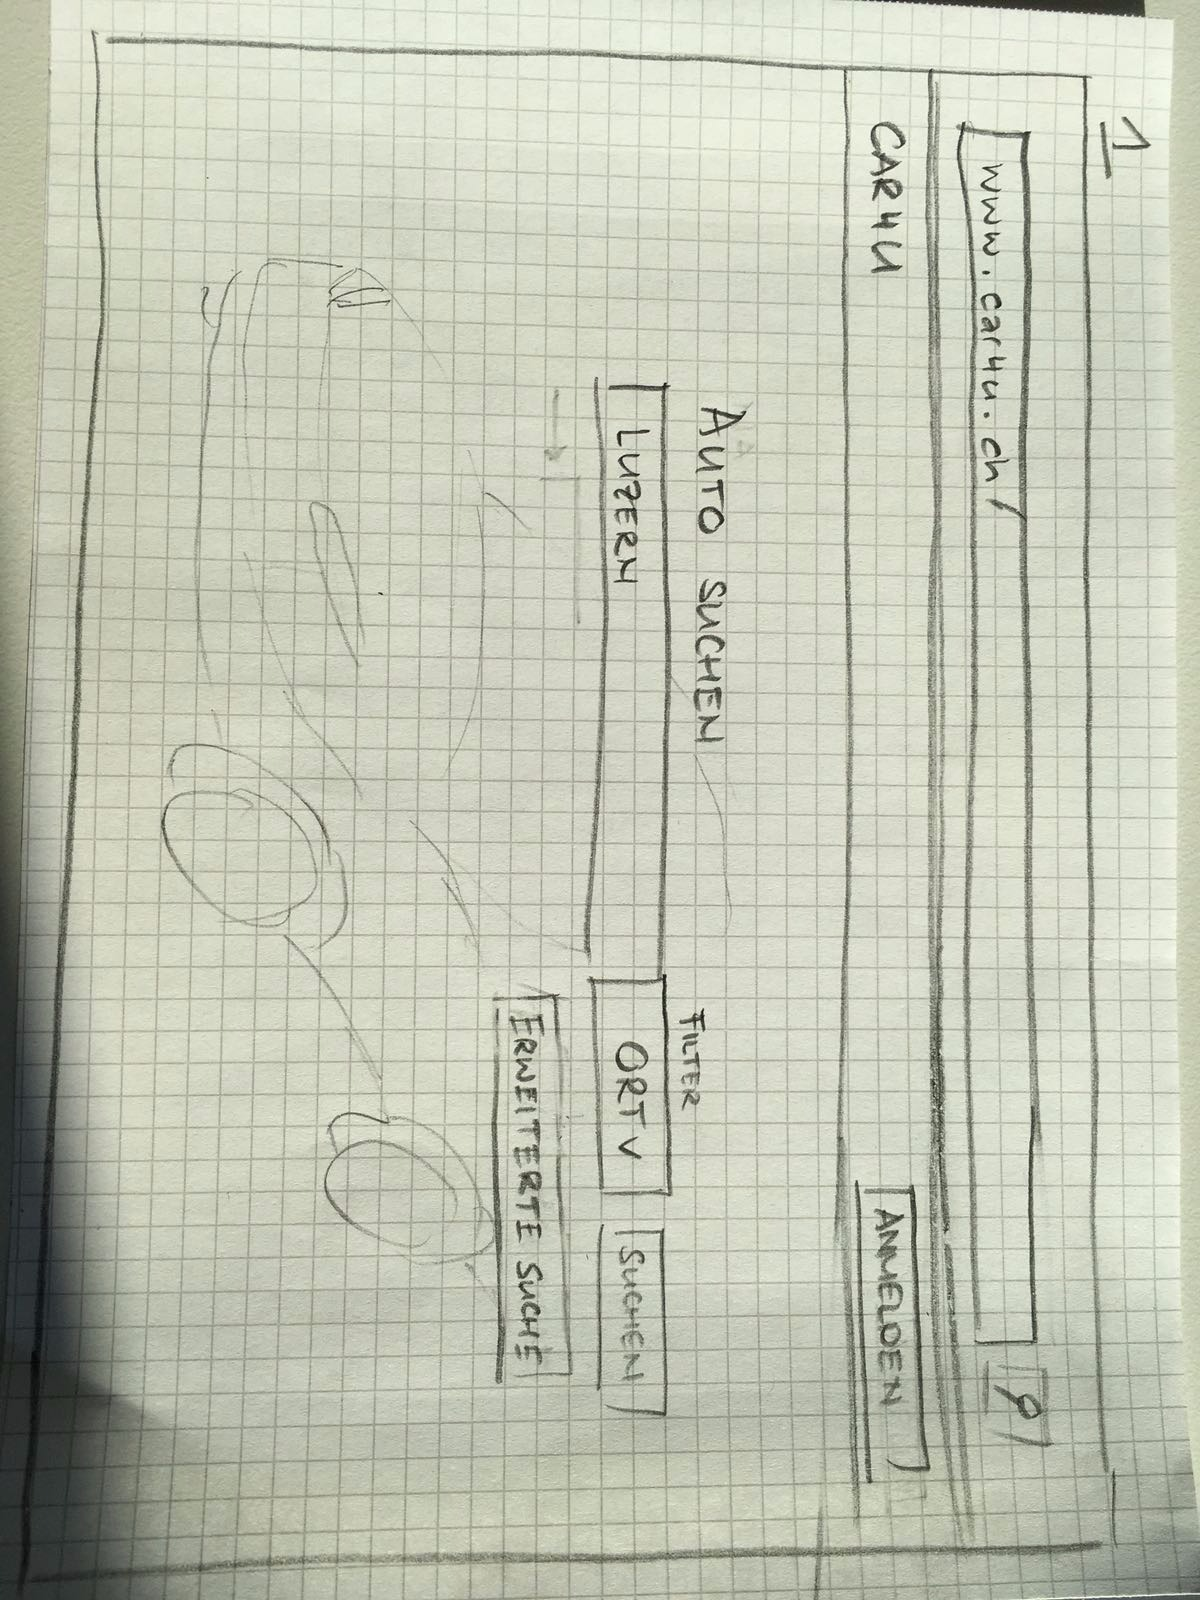 1
www.car4u.ch/
CAR4U
ANMELDEN
AUTO SUCHEN
FILTER
LUZERN
ORT V
SUCHEN
ERWEITERTE SUCHE